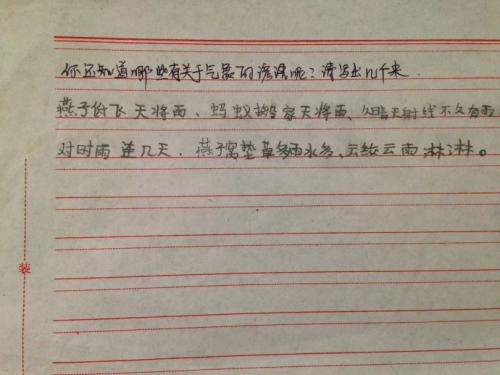 你还知道哪些有关于气象的谚语呢?请写出几个来.
燕子低飞天将雨、蚂蚁搬家天将雨、久晴天射线不久有雨
对时雨连几天.燕子窝垫草多雨水多、云绞云雨淋淋。
装